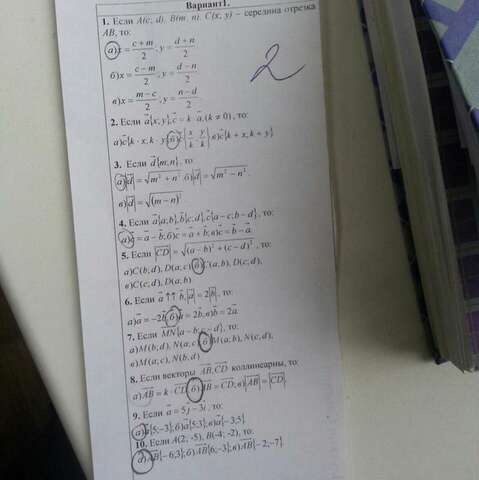 Вариант1.
1. Если A(c; d), B(m; n), C(x; y) – середина отрезка
AB, то:
а)x = (c + m)/2, y = (d + n)/2
б)x = (c – m)/2, y = (d – n)/2
в)x = (m – c)/2, y = (n – d)/2
2
2. Если a{x, y}, c = k · a, (k ≠ 0), то:
а)c{k · x, k · y} б)c{x/k, y/k} в)c{k + x, k + y}
3. Если d{m, n}, то:
а)|d| = √(m² + n²) б)|d| = √(m² – n²)
в)|d| = √(m – n)²
4. Если a{a; b}, b{c; d}, c{a – c; b – d}, то:
а)c = a – b; б)c = a + b; в)c = b – a
5. Если |CD| = √((a – b)² + (c – d)²), то:
а)C(b, d), D(a, c) б)C(a, b), D(c, d),
в)C(c, d), D(a, b)
6. Если a ↑↑ b, |a| = 2|b|, то:
а)a = –2b б)a = 2b, в)b = 2a
7. Если MN{a – b; c – d}, то:
а)M(b, d), N(a, c) б)M(a, b), N(c, d),
в)M(a, c), N(b, d)
8. Если векторы AB, CD коллинеарны, то:
а)AB = k · CD б)AB = CD; в)|AB| = |CD|
9. Если a = 5j – 3i, то:
а)a{5; –3}; б)a{5; 3}; в)a{–3; 5}
10. Если A(2; -5), B(-4; -2), то:
а)AB{–6; 3}; б)AB{6; –3}; в)AB{–2; –7}